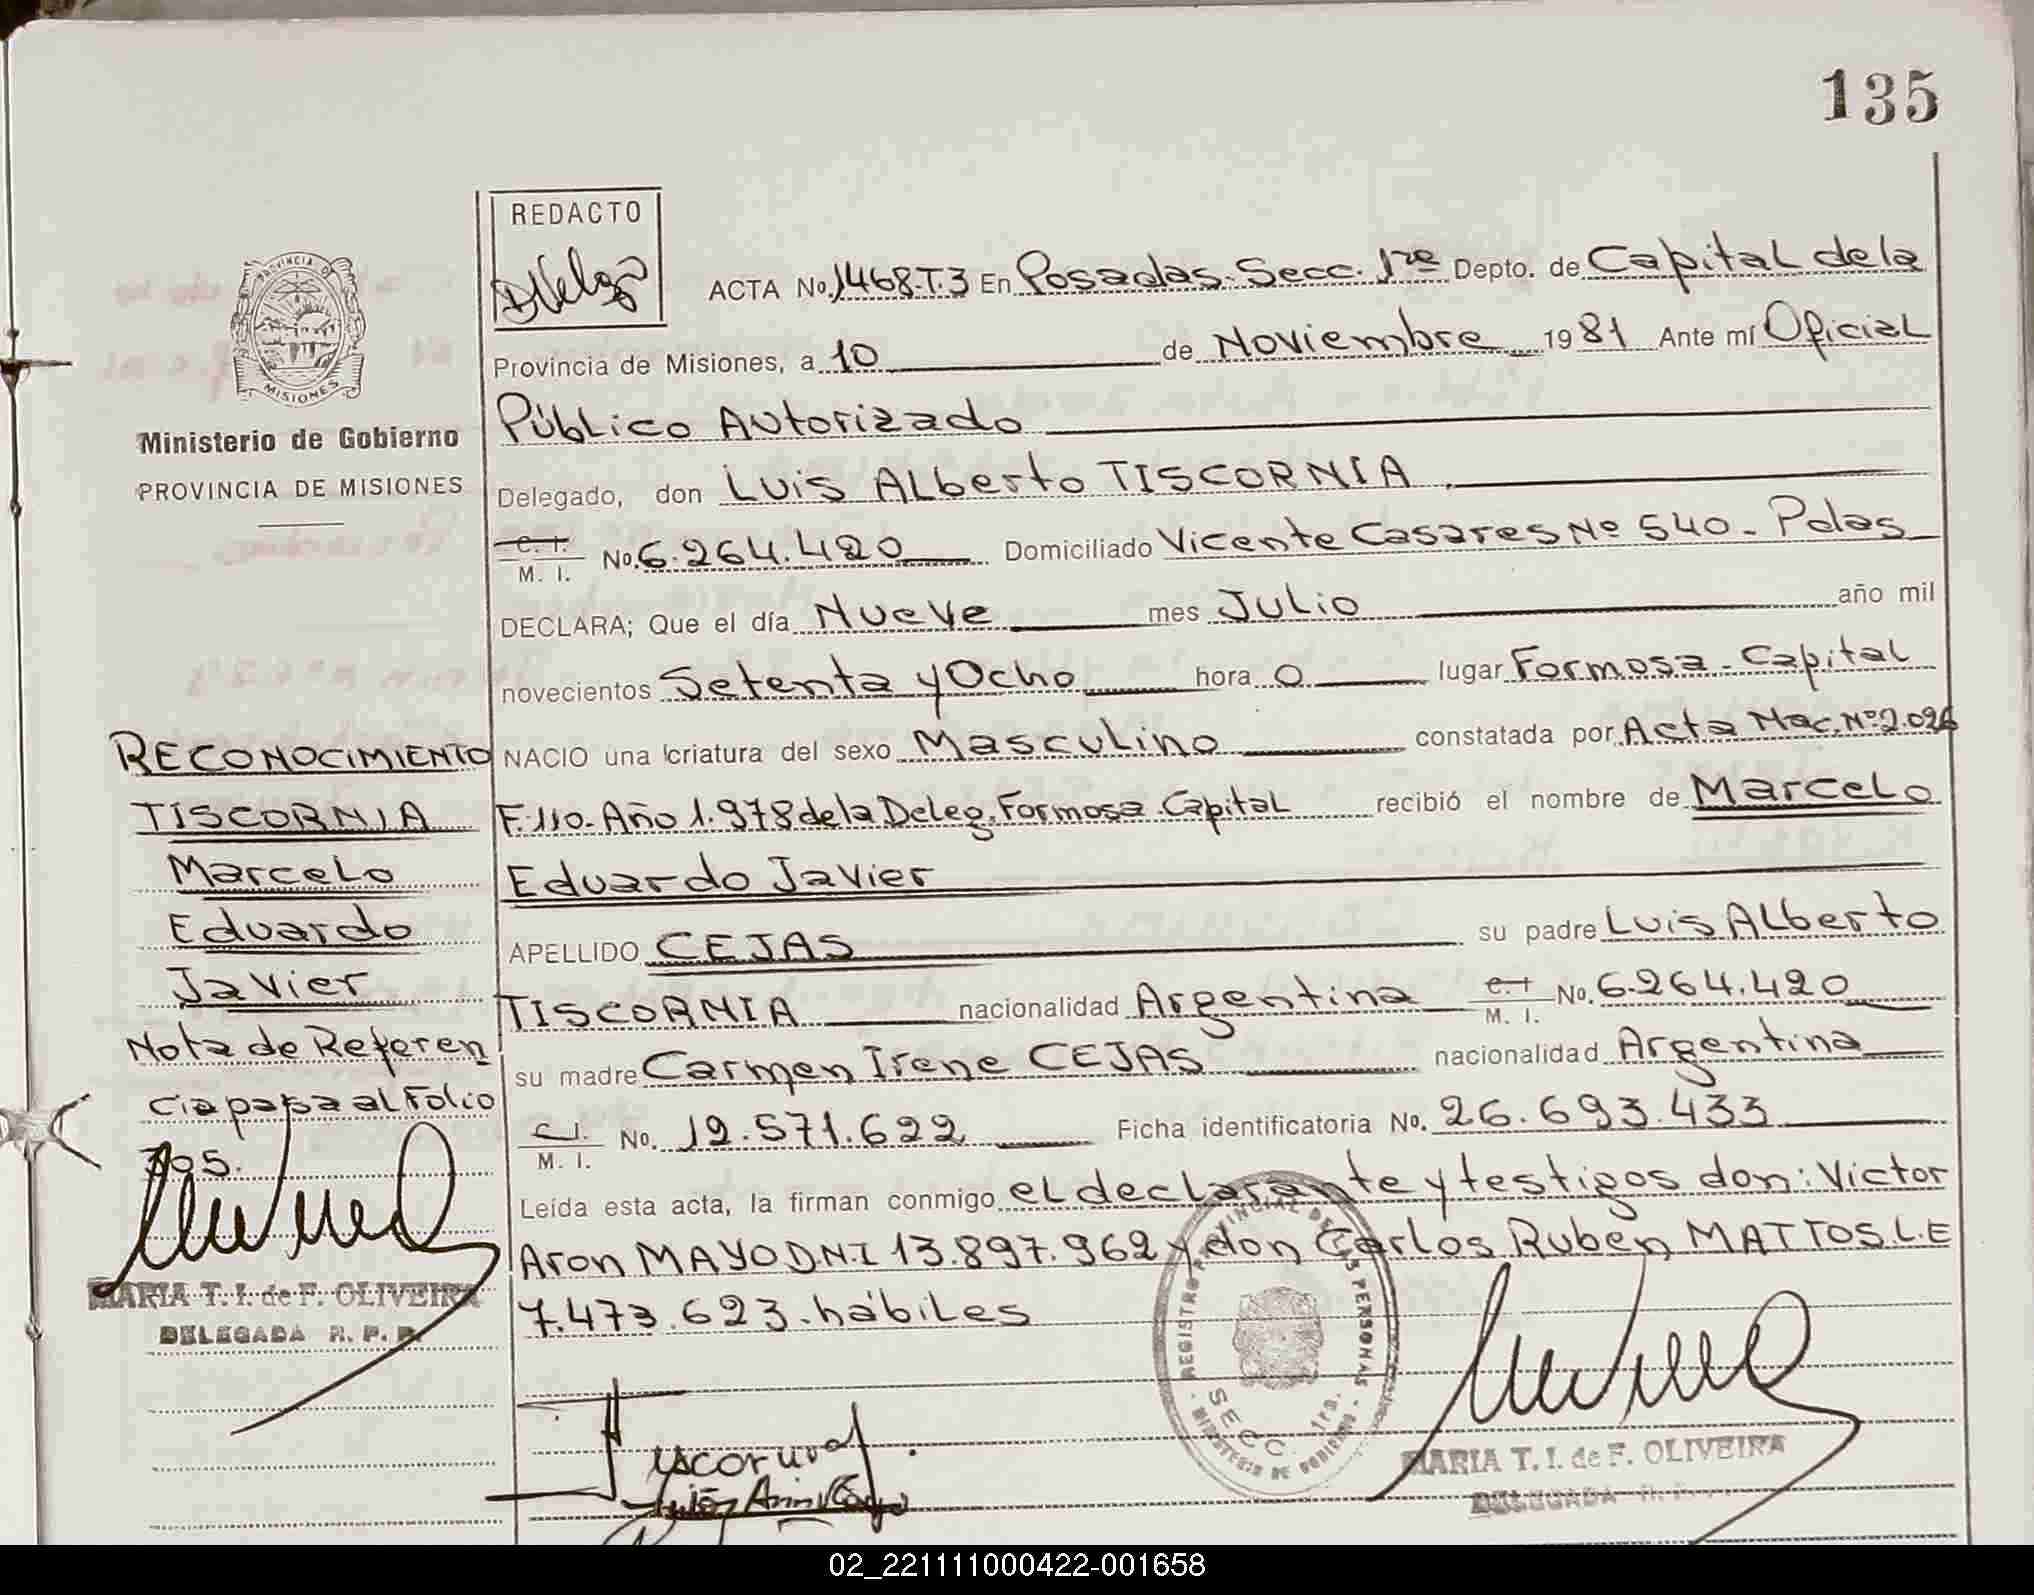 135
REDACTO
ACTA No. 1468-T.3 En Posadas-Secc. 1ra Depto. de Capital de la
Provincia de Misiones, a 10 de Noviembre 1981 Ante mí Oficial
Público Autorizado
Delegado, don Luis Alberto TISCORNIA
C. I.
M. I. No. 6.264.420 Domiciliado Vicente Casares Nº 540 - Pdas
DECLARA; Que el día Nueve mes Julio año mil
novecientos Setenta y Ocho hora 0 lugar Formosa - Capital
NACIO una criatura del sexo Masculino constatada por Acta Nac. Nº 2.026
F. 110- Año 1.978 de la Deleg. Formosa - Capital recibió el nombre de Marcelo
Eduardo Javier
APELLIDO CEJAS su padre Luis Alberto
TISCORNIA nacionalidad Argentina C. I.
M. I. No. 6.264.420
su madre Carmen Irene CEJAS nacionalidad Argentina
C. I.
M. I. No. 12.571.622 Ficha identificatoria No. 26.693.433
Leída esta acta, la firman conmigo el declarante y testigos don: Victor
Aron MAYO D.N.I 13.897.962 y don Carlos Ruben MATTOS L.E
7.473.623. hábiles
PROVINCIA DE
MISIONES
Ministerio de Gobierno
PROVINCIA DE MISIONES
RECONOCIMIENTO
TISCORNIA
Marcelo
Eduardo
Javier
Nota de Referen
cia pasa al Folio
305.
MARIA T. I. de F. OLIVEIRA
DELEGADA R. P. P.
REGISTRO PROVINCIAL DE LAS PERSONAS
SECC. 1ra.
- MINISTERIO DE GOBIERNO -
MARIA T. I. de F. OLIVEIRA
DELEGADA R. P. P.
02_221111000422-001658